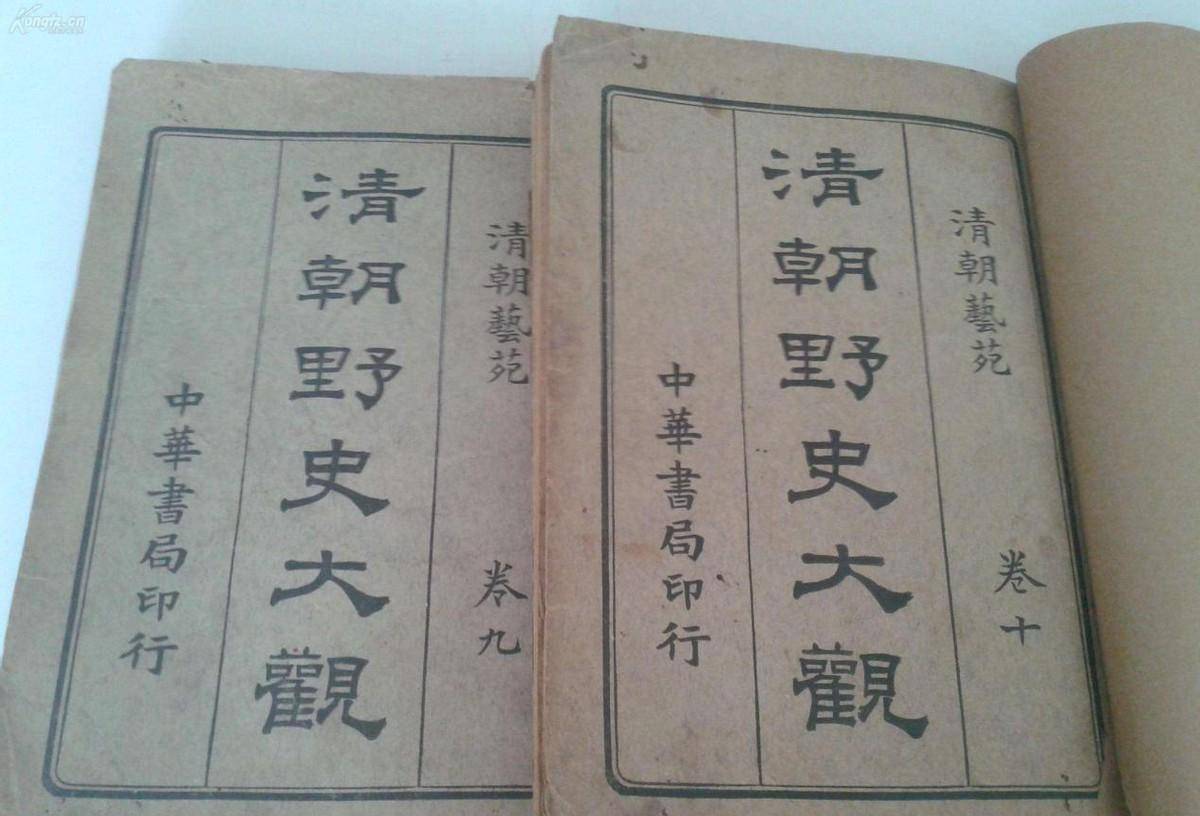 Kongfz.cn
清朝藝苑 卷九
清朝野史大觀
中華書局印行
清朝藝苑 卷十
清朝野史大觀
中華書局印行